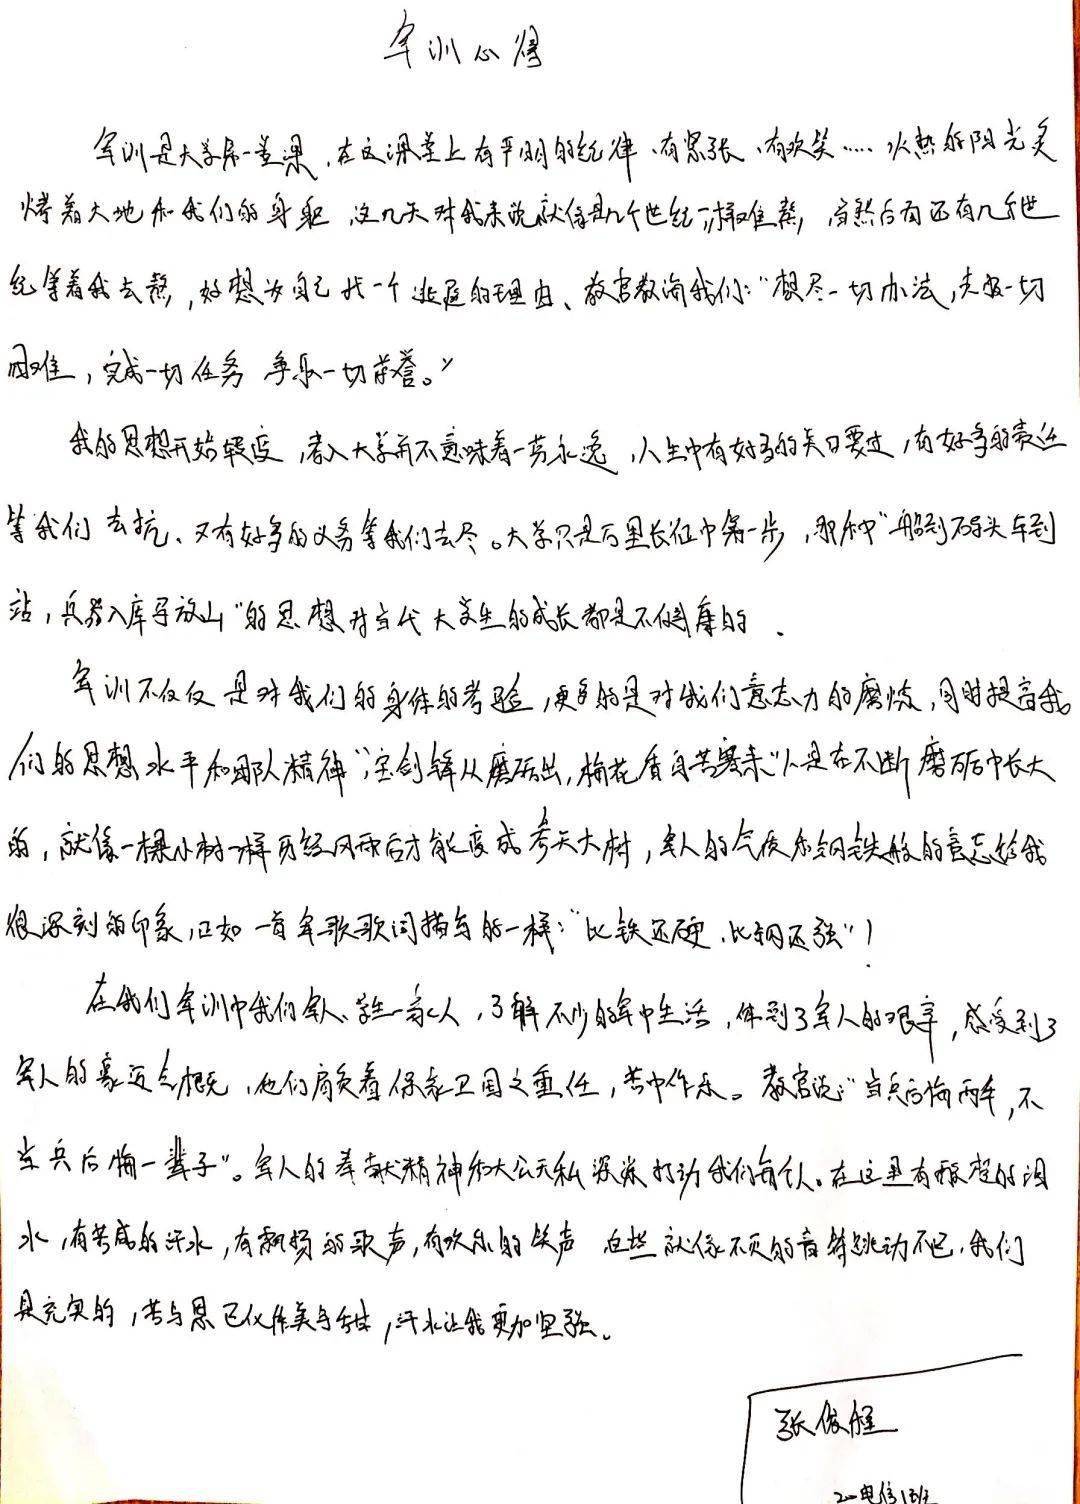 军训心得
军训是大学第一堂课，在这课堂上有严明的纪律、有紧张、有欢笑……火热的阳光炙
烤着大地和我们的身躯，这几天对我来说就像是几个世纪一样难熬，当然后面还有几个世
纪等着我去熬，好想为自己找一个逃避的理由、教官教诲我们："想尽一切办法，克服一切
困难，完成一切任务 争取一切荣誉。"
我的思想开始转变，考入大学并不意味着一劳永逸，人生中有好多的关口要过，有好多的责任
等我们去抗、又有好多的义务等我们去尽。大学只是万里长征中第一步，那种"船到码头车到
站，兵器入库马放山"的思想对当代大学生的成长都是不健康的．
军训不仅仅是对我们的身体的考验，更多的是对我们意志力的磨炼，同时提高我
们的思想水平和团队精神"宝剑锋从磨砺出，梅花香自苦寒来"人是在不断磨砺中长大
的，就像一棵小树一样历经风雨后才能变成参天大树，军人的气质和钢铁般的意志给我
很深刻的印象，正如一首军歌歌词描写的一样："比铁还硬．比钢还强"！
在我们军训中我们军人、学生一家人，了解不少的军中生活，体到了军人的艰辛，感受到了
军人的豪迈气概，他们肩负着保家卫国之重任，苦中作乐。教官说："当兵后悔两年，不
当兵后悔一辈子"。军人的奉献精神和大公无私深深打动我们每个人。在这里有的泪
水，有苦咸的汗水，有飘扬的歌声，有欢乐的笑声 这些就像不灭的音符跳动不已．我们
是充实的，苦与累已化作美与甜，汗水让我更加坚强。
张俊
20电信1班